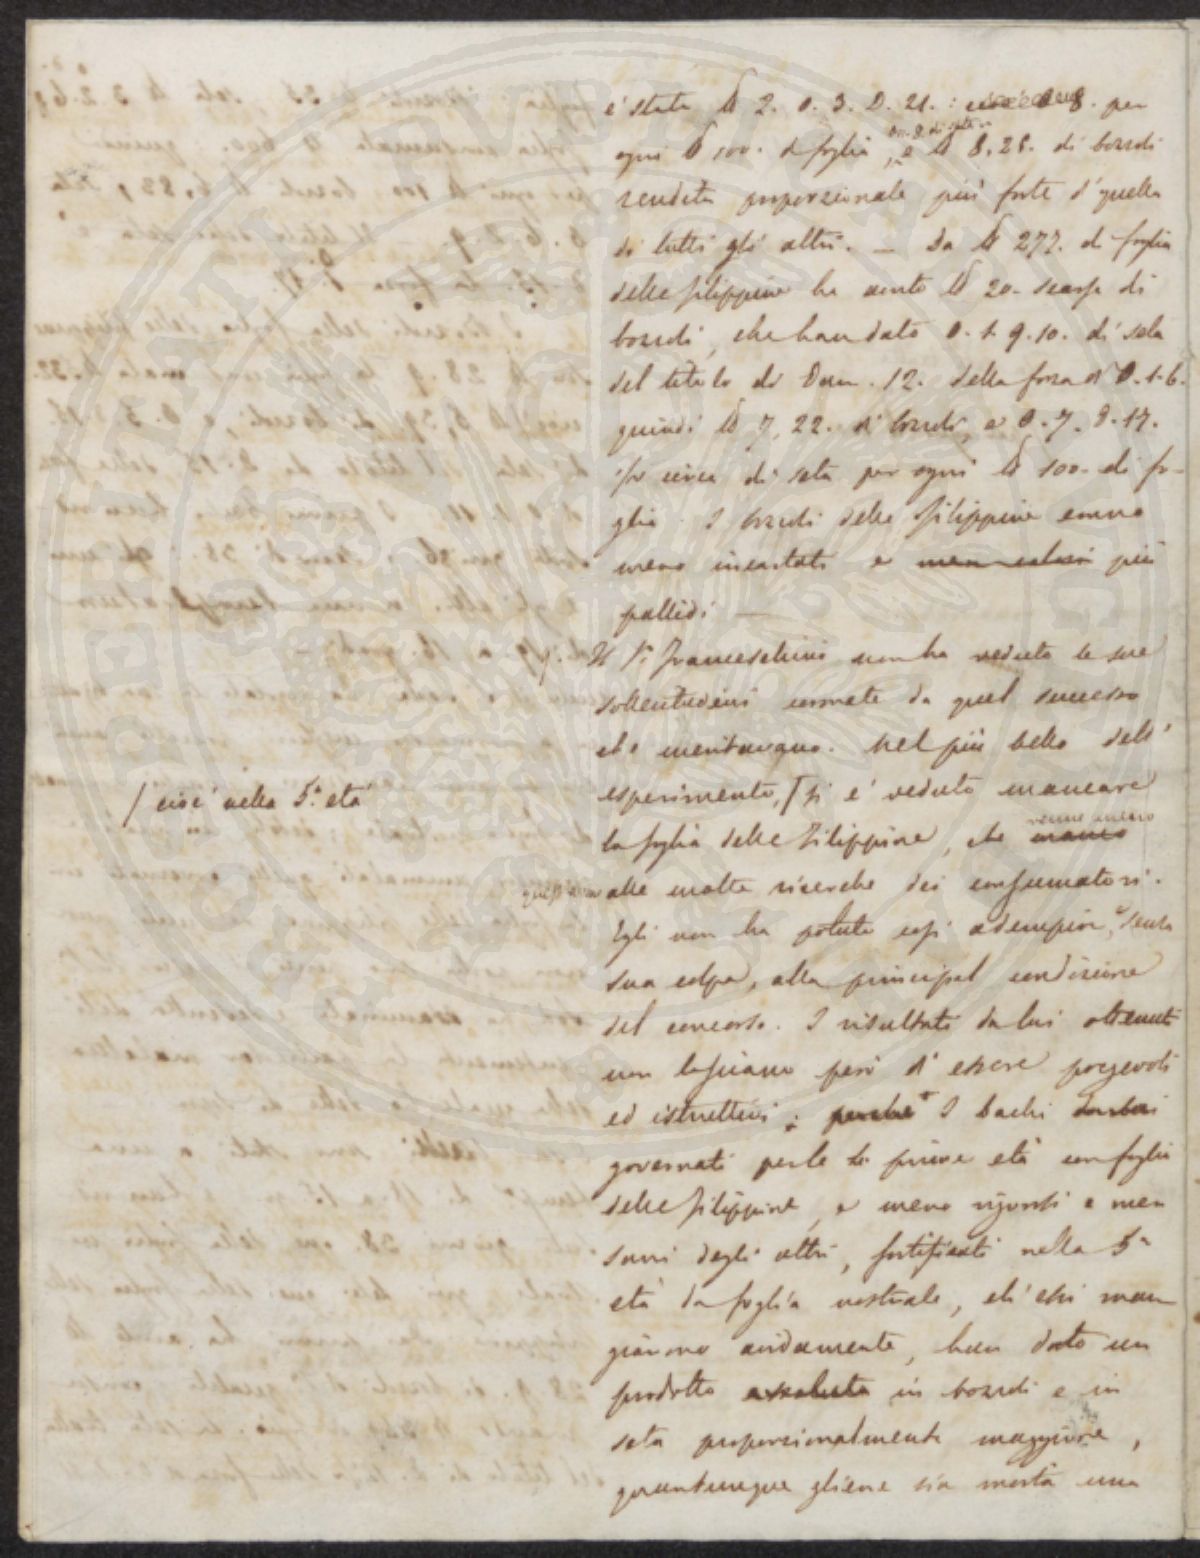 è stata ℔ 2. O. 3. D. 21. : per
on. 8. di seta
ogni ℔ 100. di foglia, e ℔ 8.28. di bozzoli
rendita proporzionale più forte d'quella
di tutti gli altri. — Da ℔ 277. di foglia
delle filippine ha avuto ℔ 20. scarse di
bozzoli, che han dato O. 1. 9. 10. di seta
del titolo di Den. 12. della forza di D. 1.6.
quindi ℔ 7, 22. di bozzoli, e O. 7. D. 17.
circa di seta per ogni ℔ 100. di fo-
glia. I bozzoli delle filippine erano
meno incartati e più
pallidi —
Il Sr. Franceschini non ha veduto le sue
sollecitudini coronate da quel successo
che meritavano. Nel più bello dell'
esperimento, / si è veduto mancare
/ cioè nella 5ª. età
la foglia delle Filippine, che manco
venne meno
quest'anno alle molte ricerche dei consumatori.
Egli non ha potuto così adempire, senza
sua colpa, alla principal condizione
del concorso. I risultati da lui ottenuti
non lasciano però d'essere pregevoli
ed istruttivi; perchè I bachi
governati per le prime età con foglia
delle filippine, e meno vigorosi e men
sani degli altri, fortificati nella 5ª
età da foglia nostrale, ch'essi man
giarono avidamente, han dato un
prodotto assoluto in bozzoli e in
seta proporzionalmente maggiore,
quantunque gliene sia morta una